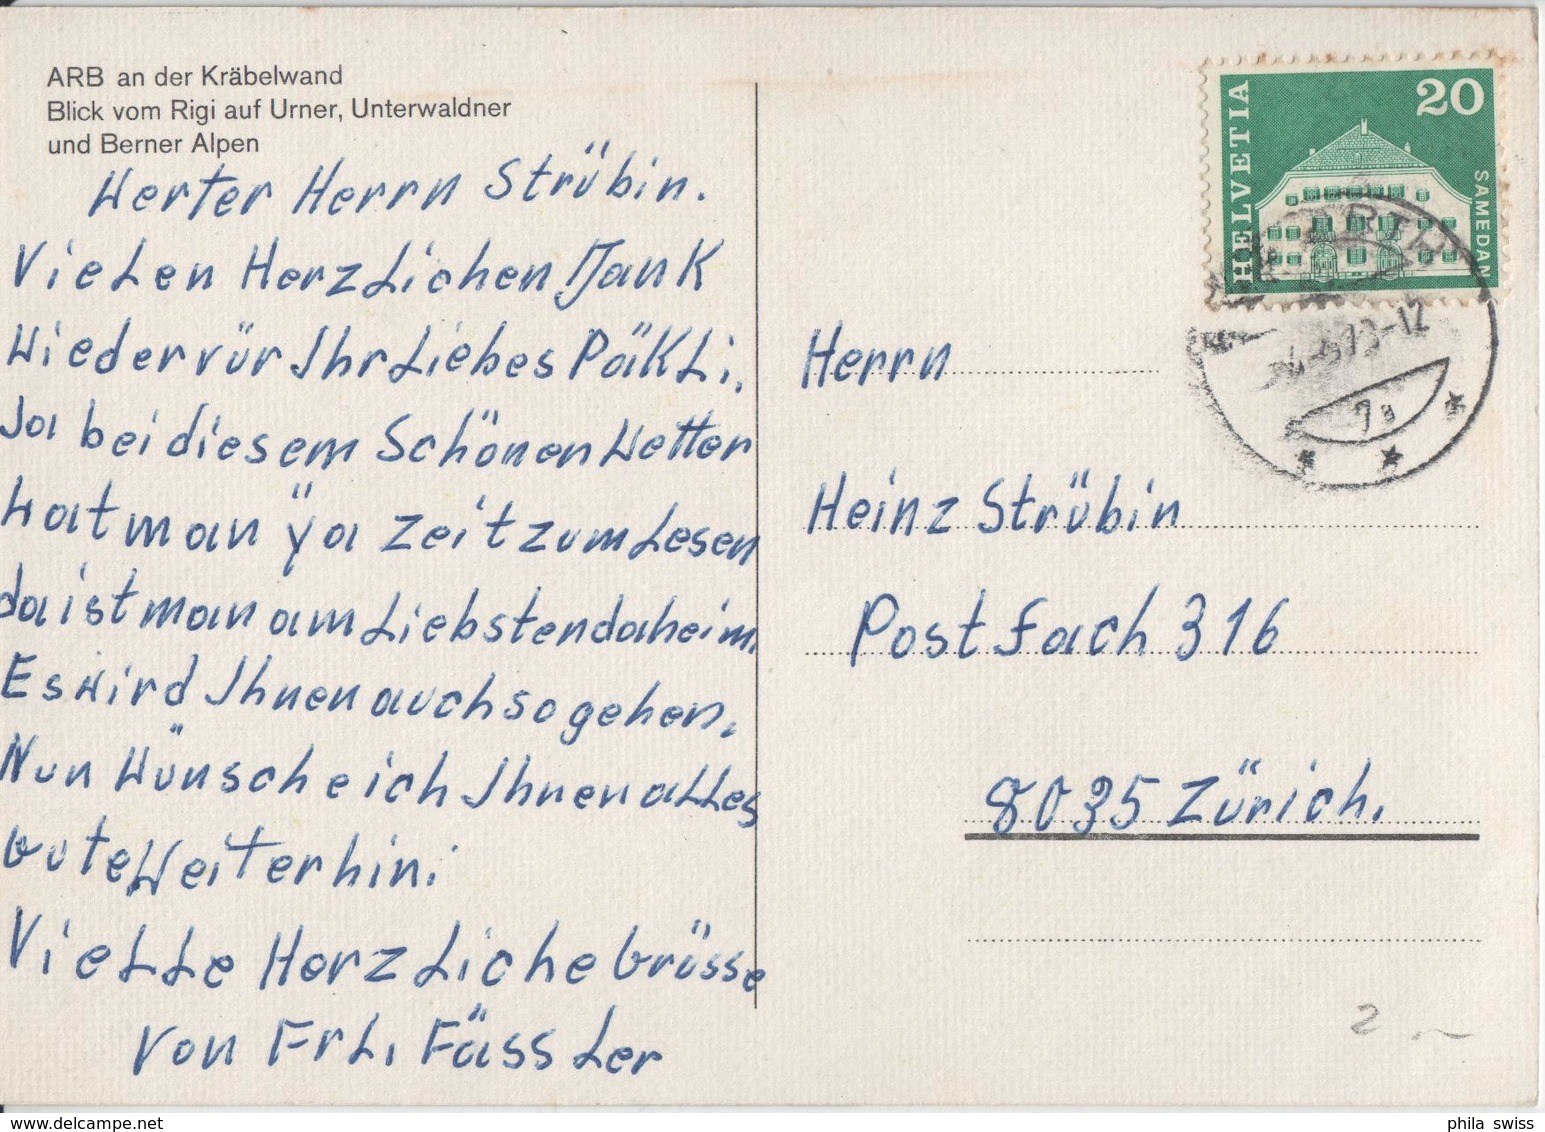 ARB an der Kräbelwand
Blick vom Rigi auf Urner, Unterwaldner
und Berner Alpen
Werter Herrn Strübin.
Vielen Herzlichen Dank
Wieder vür Ihr Liebes Päkli.
Ja bei diesem Schönen Wetter
hat man ÿa Zeit zum Lesen
da ist man am Liebsten daheim
Es wird Ihnen auch so gehen.
Nun Wünsche ich Ihnen alles
Gute Weiterhin:
Vielle Herzliche Grüsse
von Frl. Fässler
HELVETIA
20
SAMEDAN
73-12
Herrn
Heinz Strübin
Postfach 316
8035 Zürich.
2
phila swiss